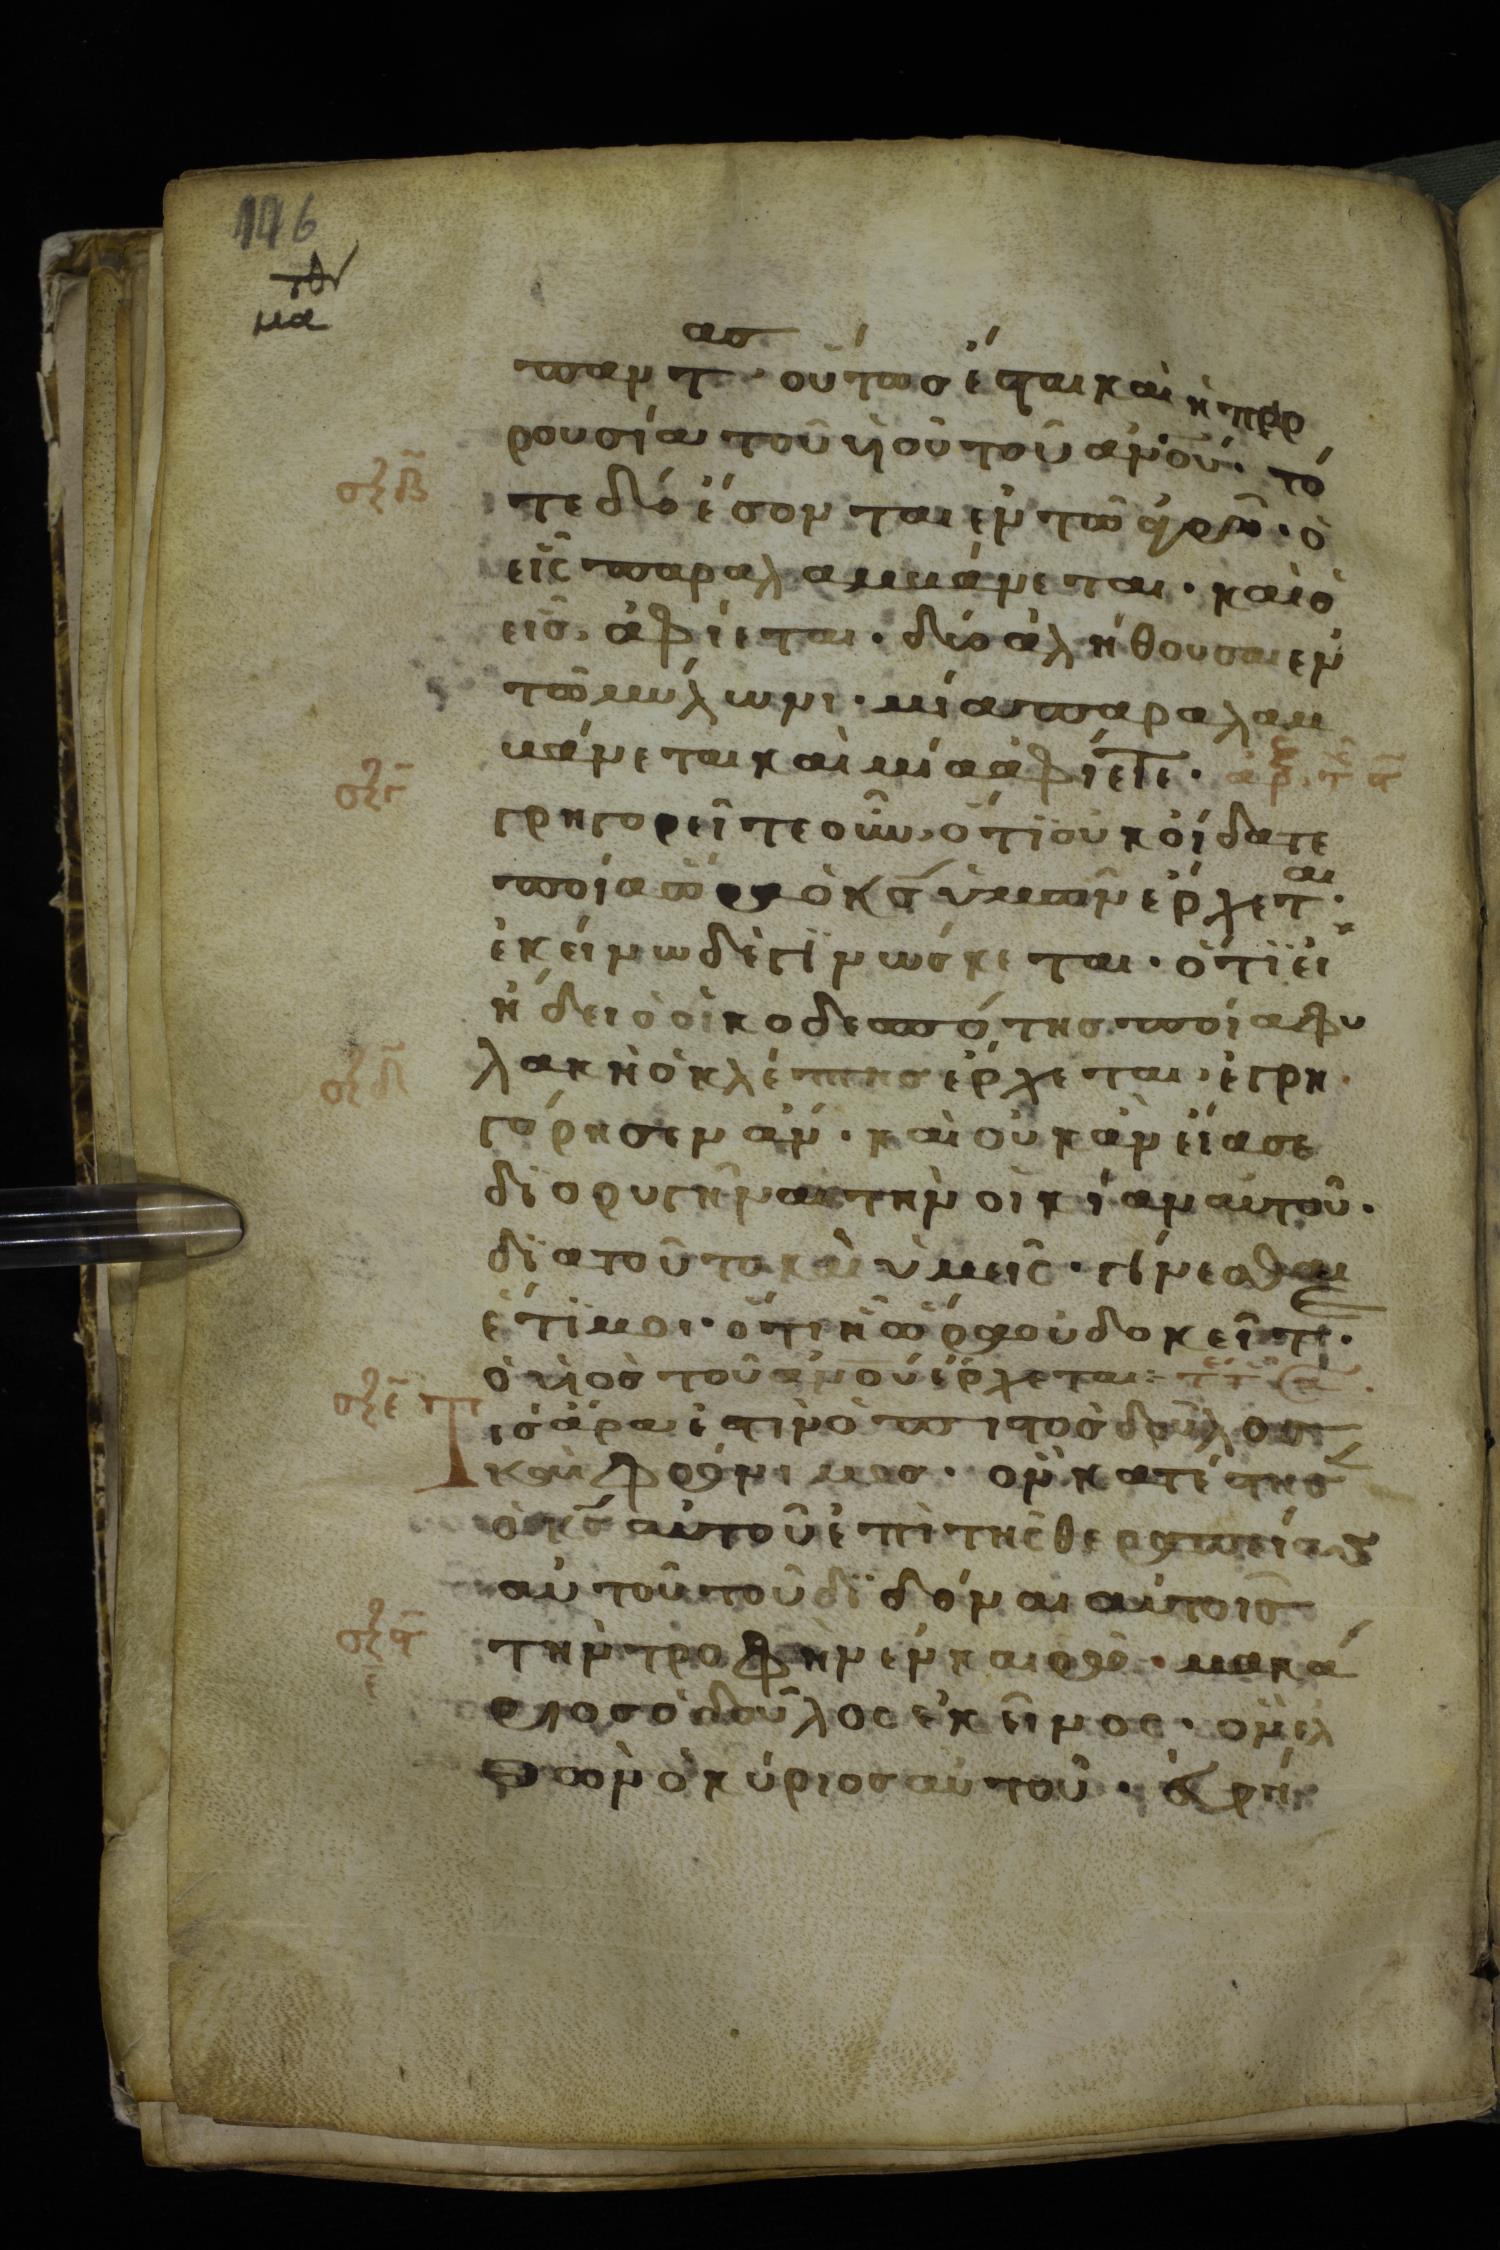 146
μα
παντας · οὕτως ἔσται καὶ ἡ πα
ρουσία τοῦ υἱοῦ τοῦ ἀνου · τό
σξβ
τε δύο ἔσονται ἐν τῶ ἀγρῶ · ὁ
εἷς παραλαμβάνεται · καὶ ὁ
εἷς ἀφίεται · δύο ἀλήθουσαι ἐν
τῶ μύλωνι · μία παραλαμ
βάνεται καὶ μία ἀφίεται ·
σξγ
γρηγορεῖτε οὖν, ὅτι οὐκ οἴδατε
ποία ὥρα ὁ κς ὑμῶν ἔρχεται ·
ἐκείνω δὲ γινώσκεται · ὅτι εἰ
ἤδει ὁ οἰκοδεσπότης ποία φυ
σξδ
λακὴ ὁ κλέπτης ἔρχεται, ἐγρη
γόρησεν ἄν · καὶ οὐκ ἂν εἴασε
διορυγῆναι τὴν οἰκίαν αὐτοῦ ·
διατοῦτο καὶ ὑμεῖς · γίνεσθαι
ἕτιμοι · ὅτι ἡ ὥρα οὐ δοκεῖτε ·
ὁ υἱὸς τοῦ ἀνου ἔρχεται :
σξε
Τίς ἄρα ἐστιν ὁ πιστὸς δοῦλος
καὶ φρόνιμος · ὃν κατέστησ
ὁ κς αὐτοῦ ἐπὶ τῆς θεραπείας
αὐτοῦ τοῦ διδόναι αὐτοῖς
σξς
ε
τὴν τροφὴν ἐν καιρῶ · μακά
ριος ὁ δοῦλος ἐκεῖνος · ὃν ἐλ
θὼν ὁ κύριος αὐτοῦ · εὑρή